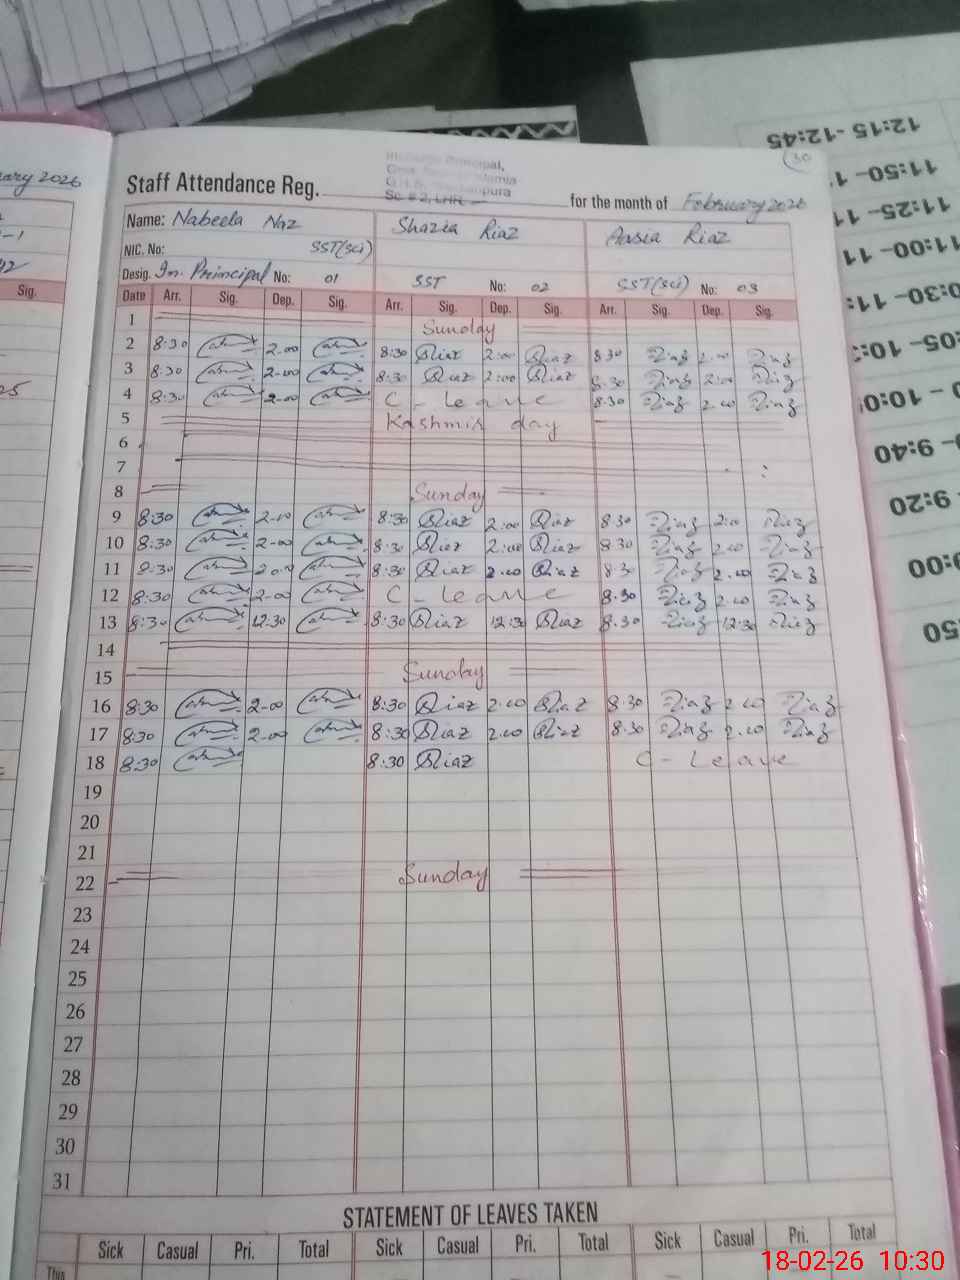 12:15-12:45
11:50-1
11:25-11
11:00-11
0:30-11:
:05-10:
10:0
9:40
9:20
00:
50
ary 2026
Sig.
30
Principal,
Staff Attendance Reg. for the month of February 2026
Name: Nabeela Naz Shazia Riaz Aasia Riaz
NIC. No: SST(sci)
Desig. In. Principal No: 01 SST No: 02 SST(sci) No: 03
Date Arr. Sig. Dep. Sig. Arr. Sig. Dep. Sig. Arr. Sig. Dep. Sig.
1 Sunday
2 8:30 2-00 8:30 Riaz 2:00 Riaz 8:30 Riaz 2:00 Riaz
3 8:30 2-00 8:30 Riaz 2:00 Riaz 8:30 Riaz 2:00 Riaz
4 8:30 2-00 C - Leave 8:30 Riaz 2:00 Riaz
5 Kashmir day
6
7
8 Sunday
9 8:30 2-00 8:30 Riaz 2:00 Riaz 8:30 Riaz 2:00 Riaz
10 8:30 2-00 8:30 Riaz 2:00 Riaz 8:30 Riaz 2:00 Riaz
11 8:30 2-00 8:30 Riaz 2:00 Riaz 8:30 Riaz 2:00 Riaz
12 8:30 2-00 C - Leave 8:30 Riaz 2:00 Riaz
13 8:30 12:30 8:30 Riaz 12:30 Riaz 8:30 Riaz 12:30 Riaz
14
15 Sunday
16 8:30 2-00 8:30 Riaz 2:00 Riaz 8:30 Riaz 2:00 Riaz
17 8:30 2-00 8:30 Riaz 2:00 Riaz 8:30 Riaz 2:00 Riaz
18 8:30 8:30 Riaz C - Leave
19
20
21
22 Sunday
23
24
25
26
27
28
29
30
31
STATEMENT OF LEAVES TAKEN
Sick Casual Pri. Total Sick Casual Pri. Total Sick Casual Pri. Total
This
18-02-26 10:30